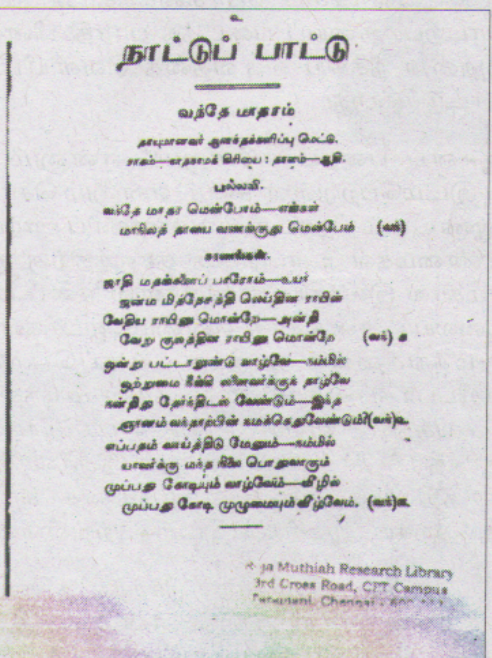 உ
நாட்டுப் பாட்டு
வந்தே மாதரம்
தாயுமானவர் ஆனந்தக்களிப்பு மெட்டு.
ராகம்— நாதநாமக் கிரியை: தாளம்—ஆதி.
பல்லவி.
வந்தே மாதர மென்போம்—எங்கள்
மாநிலத் தாயை வணங்குது மென்போம் (வந்)
சரணங்கள்.
ஜாதி மதங்களைப் பாரோம்—உயர்
ஜன்ம மித்தேசத்தி லெய்தின ராயின்
வேதிய ராயினு மொன்றே—அன்றி
வேறு குலத்தின ராயினு மொன்றே (வந்) க
ஒன்று பட்டாலுண்டு வாழ்வே—நம்மில்
ஒற்றுமை நீங்கி லனைவர்க்குந் தாழ்வே
நன்றிது தேர்ந்திடல் வேண்டும்—இந்த
ஞானம் வந்தாற்பின் நமக்கெதுவேண்டும்?(வந்)உ
எப்பதம் வாய்த்திடு மேனும்—நம்மில்
யாவர்க்கு மந்த நிலை பொதுவாகும்
முப்பது கோடியும் வாழ்வோம்—வீழில்
முப்பது கோடி முழுமையும் வீழ்வோம். (வந்)௩
Muthiah Research Library
3rd Cross Road, CPT Campus
Taramani, Chennai